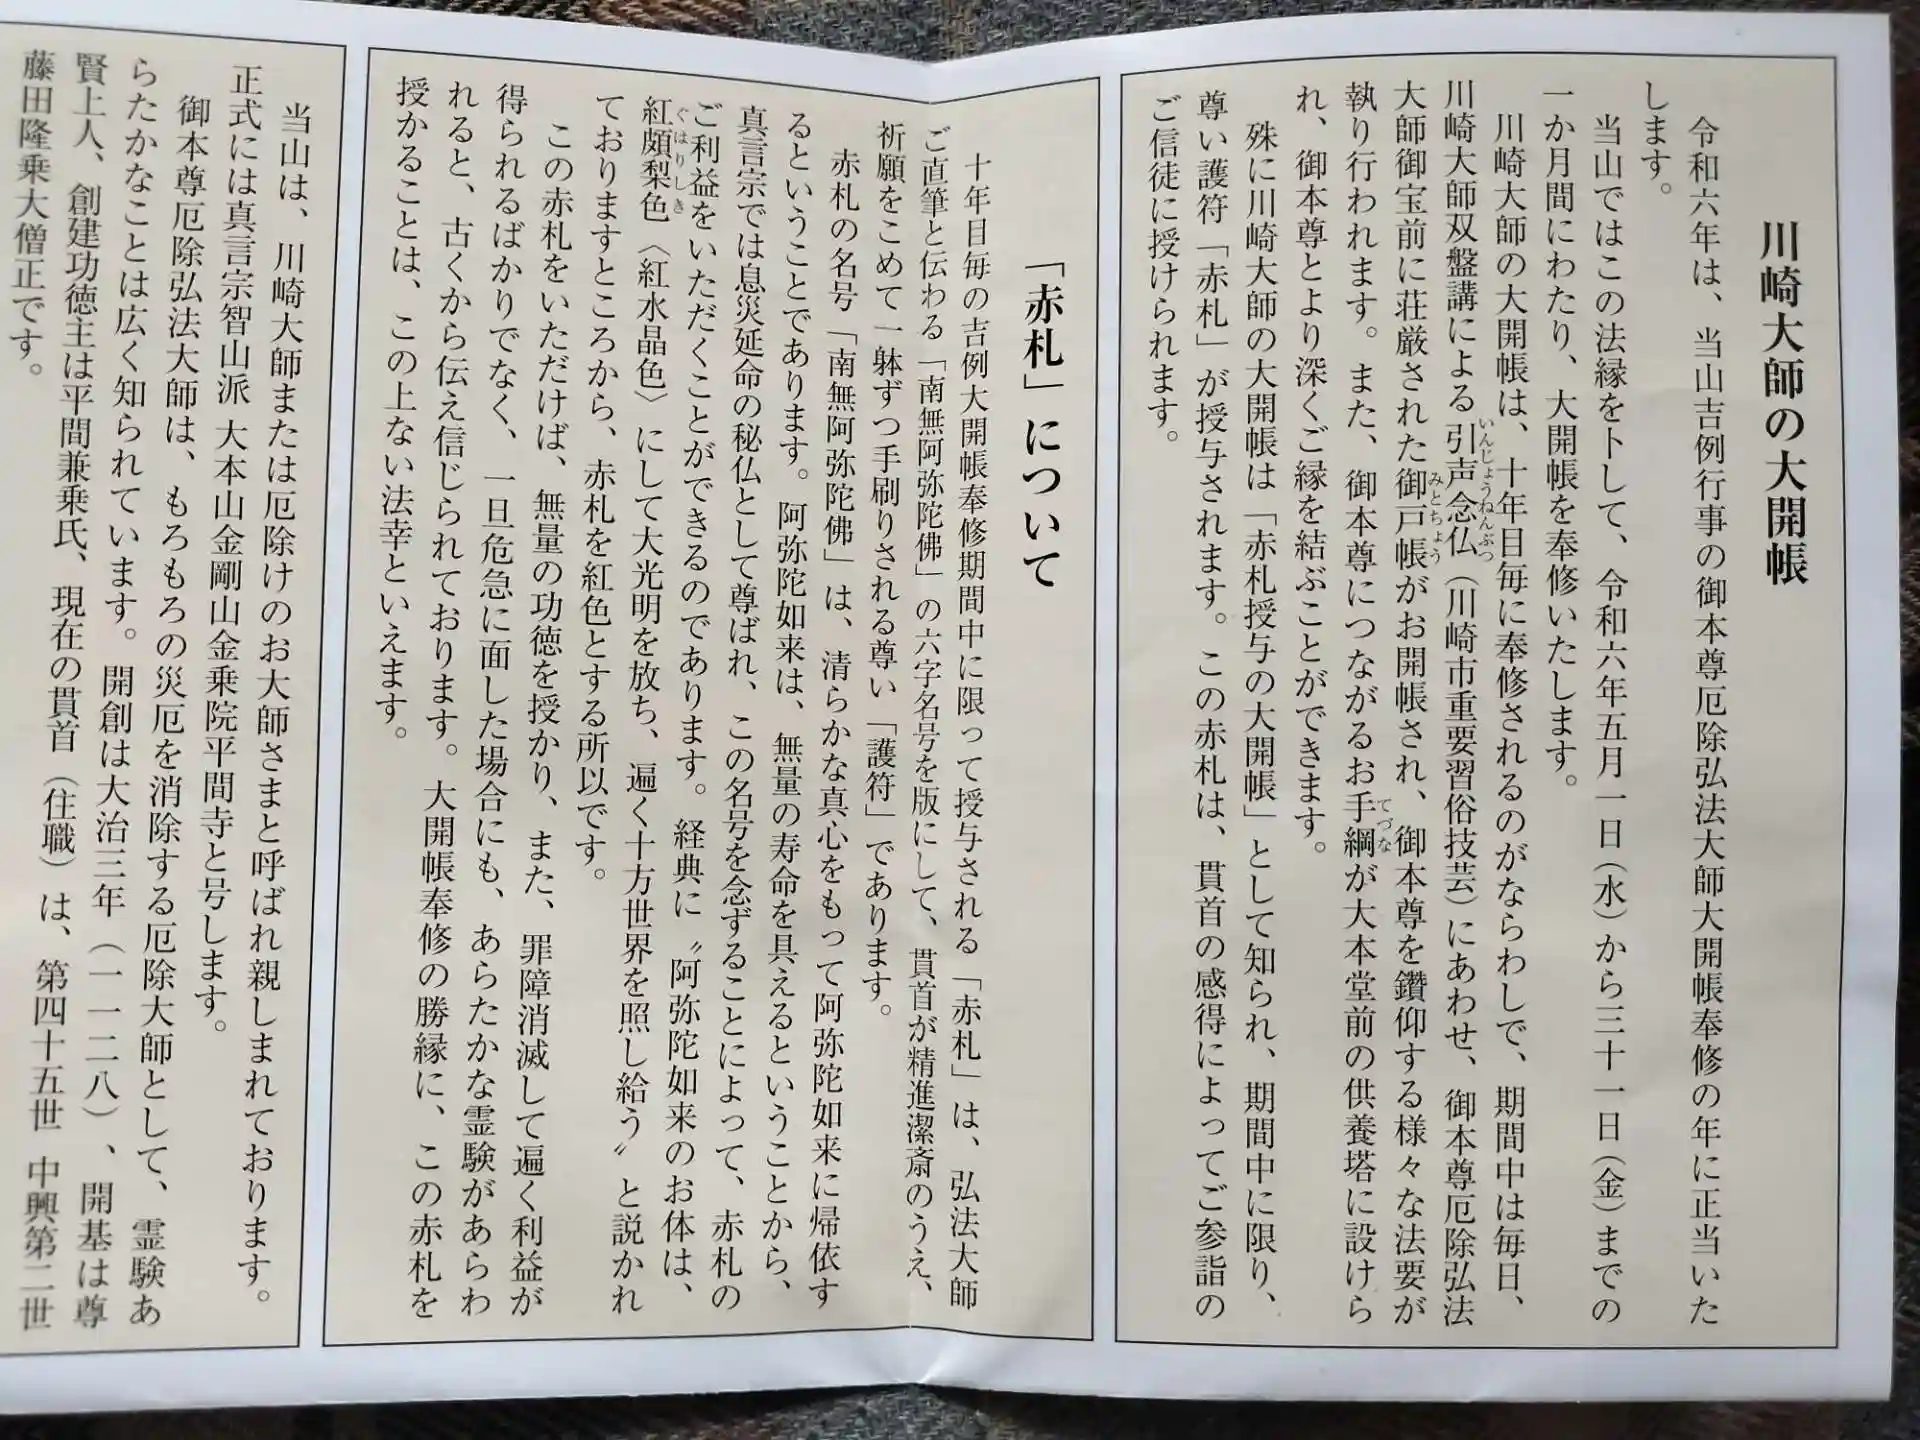 川崎大師の大開帳
令和六年は、当山吉例行事の御本尊厄除弘法大師大開帳奉修の年に正当いた
します。
当山ではこの法縁をトして、令和六年五月一日（水）から三十一日（金）までの
一か月間にわたり、大開帳を奉修いたします。
川崎大師の大開帳は、十年目毎に奉修されるのがならわしで、期間中は毎日、
川崎大師双盤講による引声念仏（川崎市重要習俗技芸）にあわせ、御本尊厄除弘法
いんじょうねんぶつ
大師御宝前に荘厳された御戸帳がお開帳され、御本尊を鑽仰する様々な法要が
みとちょう
執り行われます。また、御本尊につながるお手綱が大本堂前の供養塔に設けら
てづな
れ、御本尊とより深くご縁を結ぶことができます。
殊に川崎大師の大開帳は「赤札授与の大開帳」として知られ、期間中に限り、
尊い護符「赤札」が授与されます。この赤札は、貫首の感得によってご参詣の
ご信徒に授けられます。
「赤札」について
十年目毎の吉例大開帳奉修期間中に限って授与される「赤札」は、弘法大師
ご直筆と伝わる「南無阿弥陀佛」の六字名号を版にして、貫首が精進潔斎のうえ、
祈願をこめて一躰ずつ手刷りされる尊い「護符」であります。
赤札の名号「南無阿弥陀佛」は、清らかな真心をもって阿弥陀如来に帰依す
るということであります。阿弥陀如来は、無量の寿命を具えるということから、
真言宗では息災延命の秘仏として尊ばれ、この名号を念ずることによって、赤札の
ご利益をいただくことができるのであります。経典に〝阿弥陀如来のお体は、
紅頗梨色（紅水晶色）にして大光明を放ち、遍く十方世界を照し給う〟と説かれ
ぐはりしき
ておりますところから、赤札を紅色とする所以です。
この赤札をいただけば、無量の功徳を授かり、また、罪障消滅して遍く利益が
得られるばかりでなく、一旦危急に面した場合にも、あらたかな霊験があらわ
れると、古くから伝え信じられております。大開帳奉修の勝縁に、この赤札を
授かることは、この上ない法幸といえます。
当山は、川崎大師または厄除けのお大師さまと呼ばれ親しまれております。
正式には真言宗智山派 大本山金剛山金乗院平間寺と号します。
御本尊厄除弘法大師は、もろもろの災厄を消除する厄除大師として、霊験あ
らたかなことは広く知られています。開創は大治三年（一一二八）、開基は尊
賢上人、創建功徳主は平間兼乗氏、現在の貫首（住職）は、第四十五世 中興第二世
藤田隆乗大僧正です。